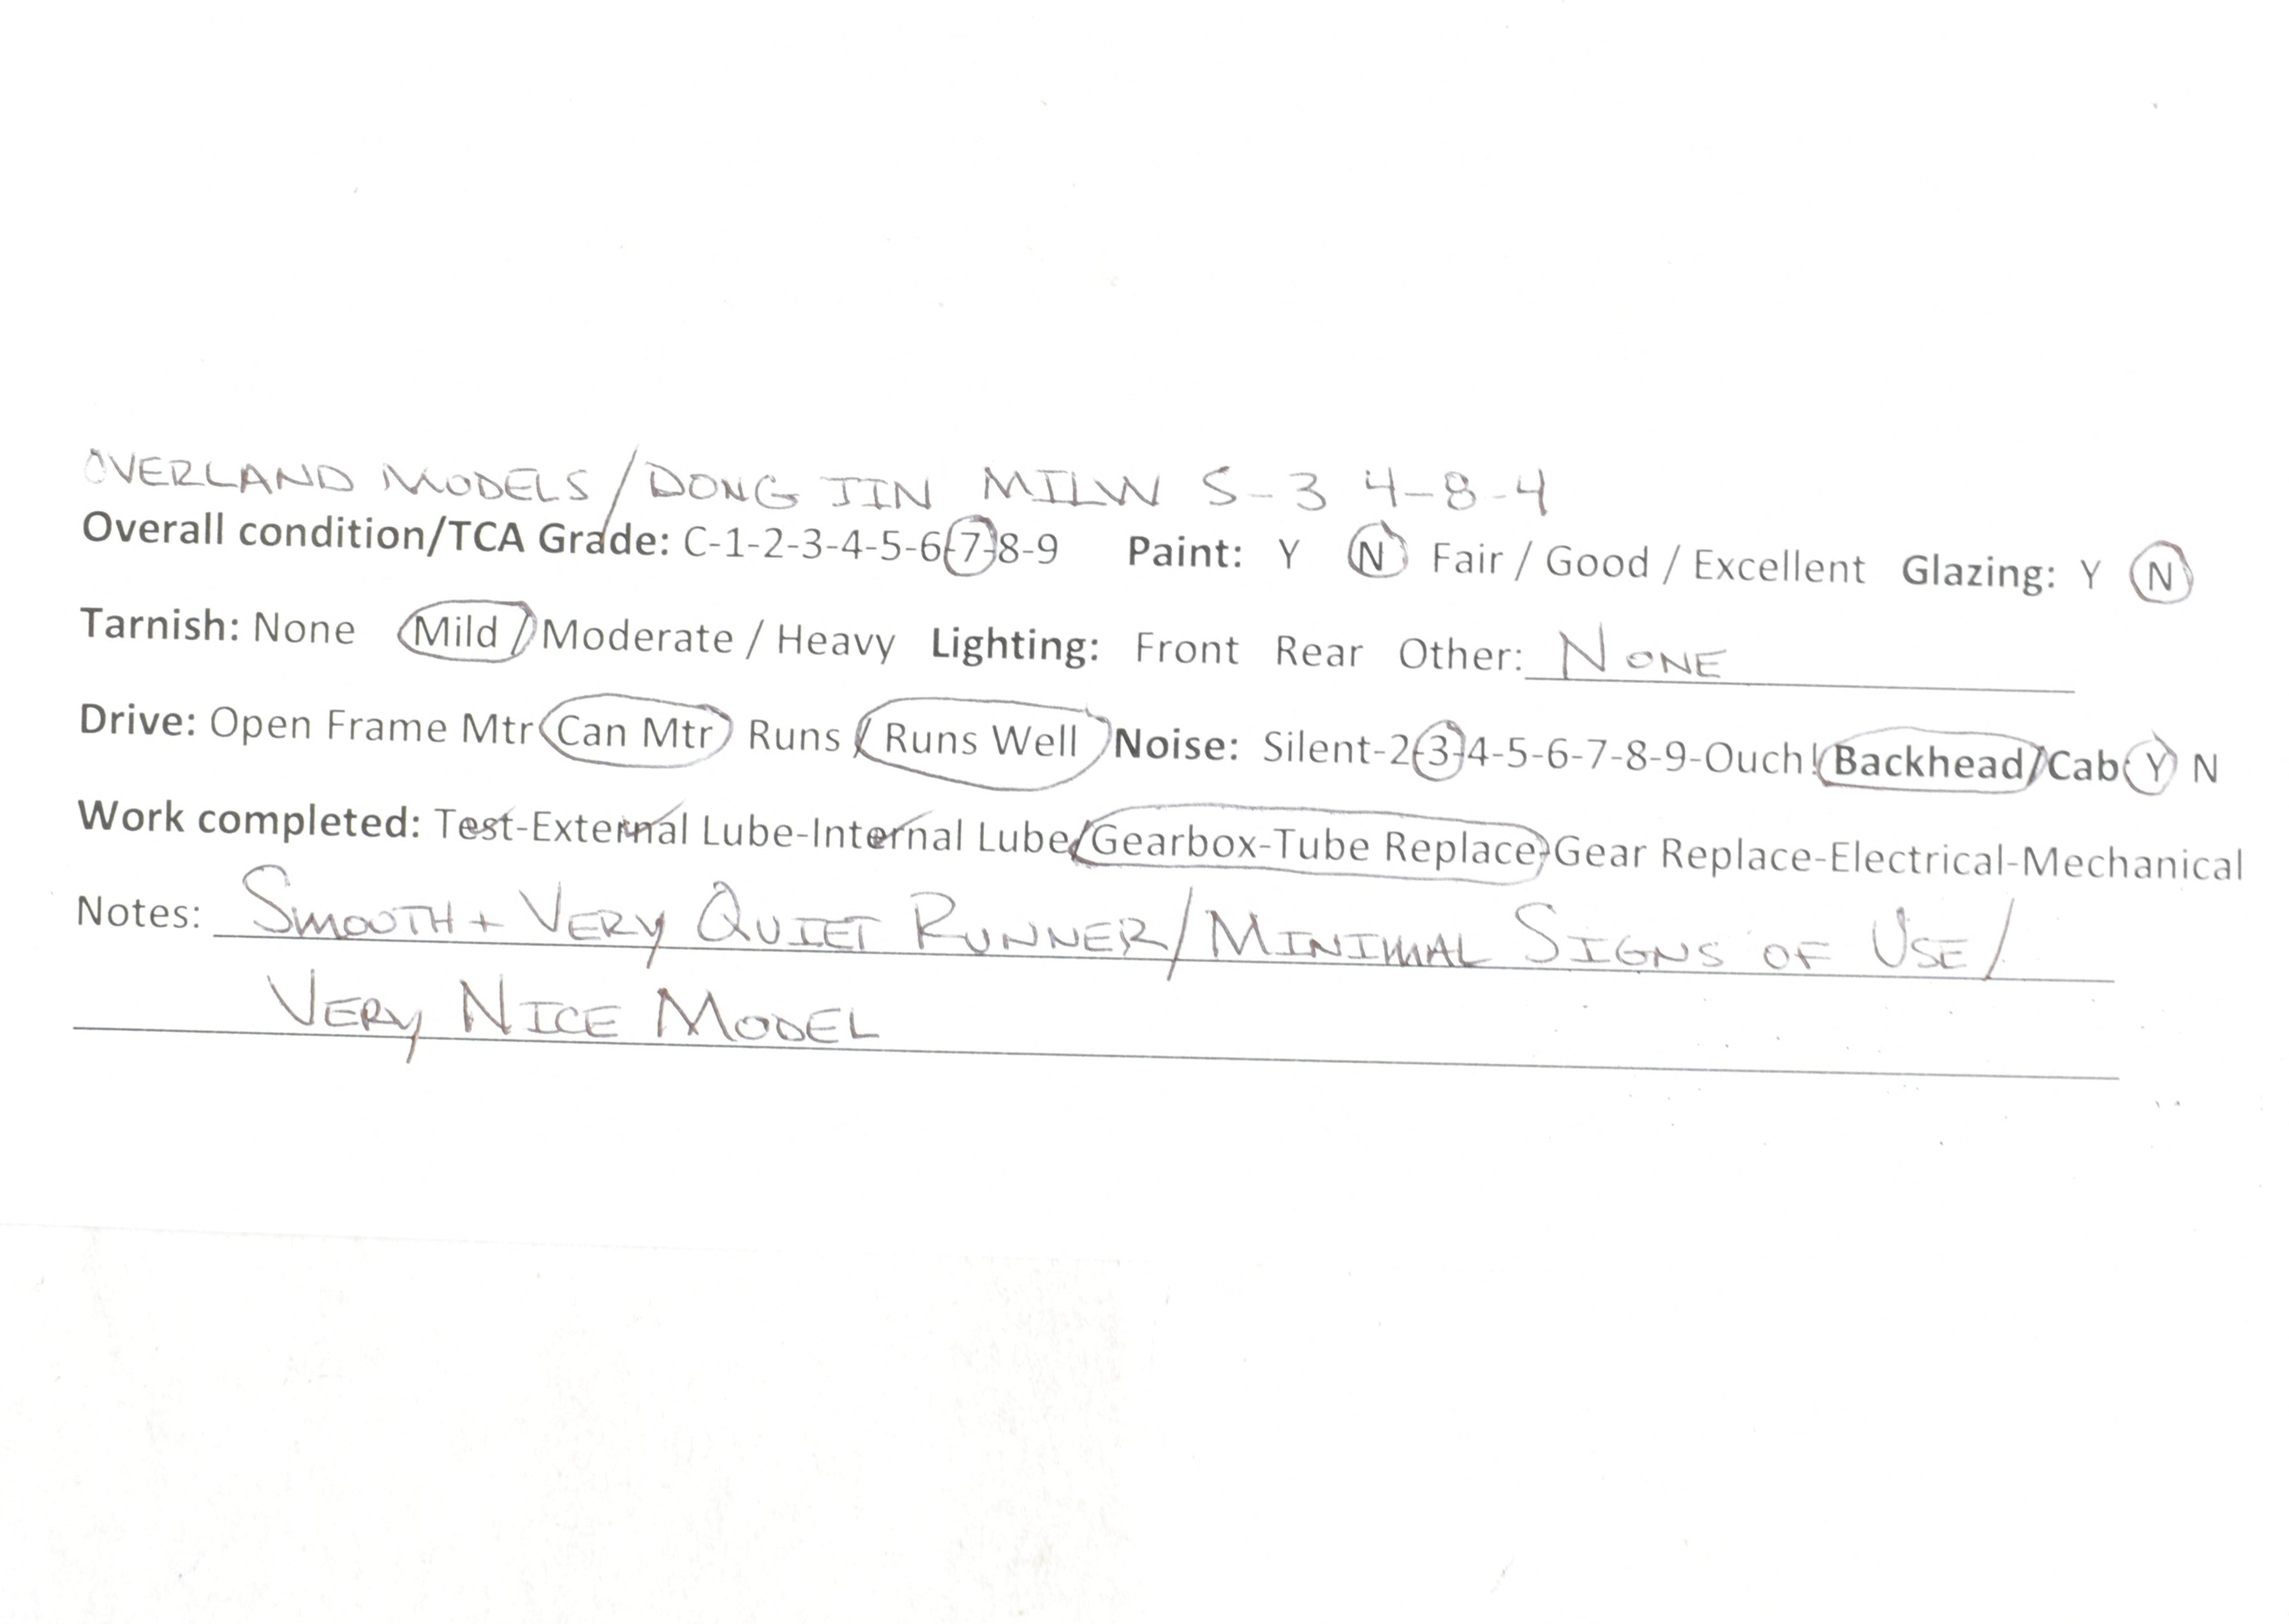 OVERLAND MODELS/DONG JIN MILW S-3 4-8-4
Overall condition/TCA Grade: C-1-2-3-4-5-6-7-8-9 Paint: Y N Fair / Good / Excellent Glazing: Y N
Tarnish: None Mild / Moderate / Heavy Lighting: Front Rear Other: NONE
Drive: Open Frame Mtr Can Mtr Runs / Runs Well Noise: Silent-2-3-4-5-6-7-8-9-Ouch! Backhead/Cab: Y N
Work completed: Test-External Lube-Internal Lube/Gearbox-Tube Replace-Gear Replace-Electrical-Mechanical
Notes: SMOOTH + VERY QUIET RUNNER/MINIMAL SIGNS OF USE/
VERY NICE MODEL